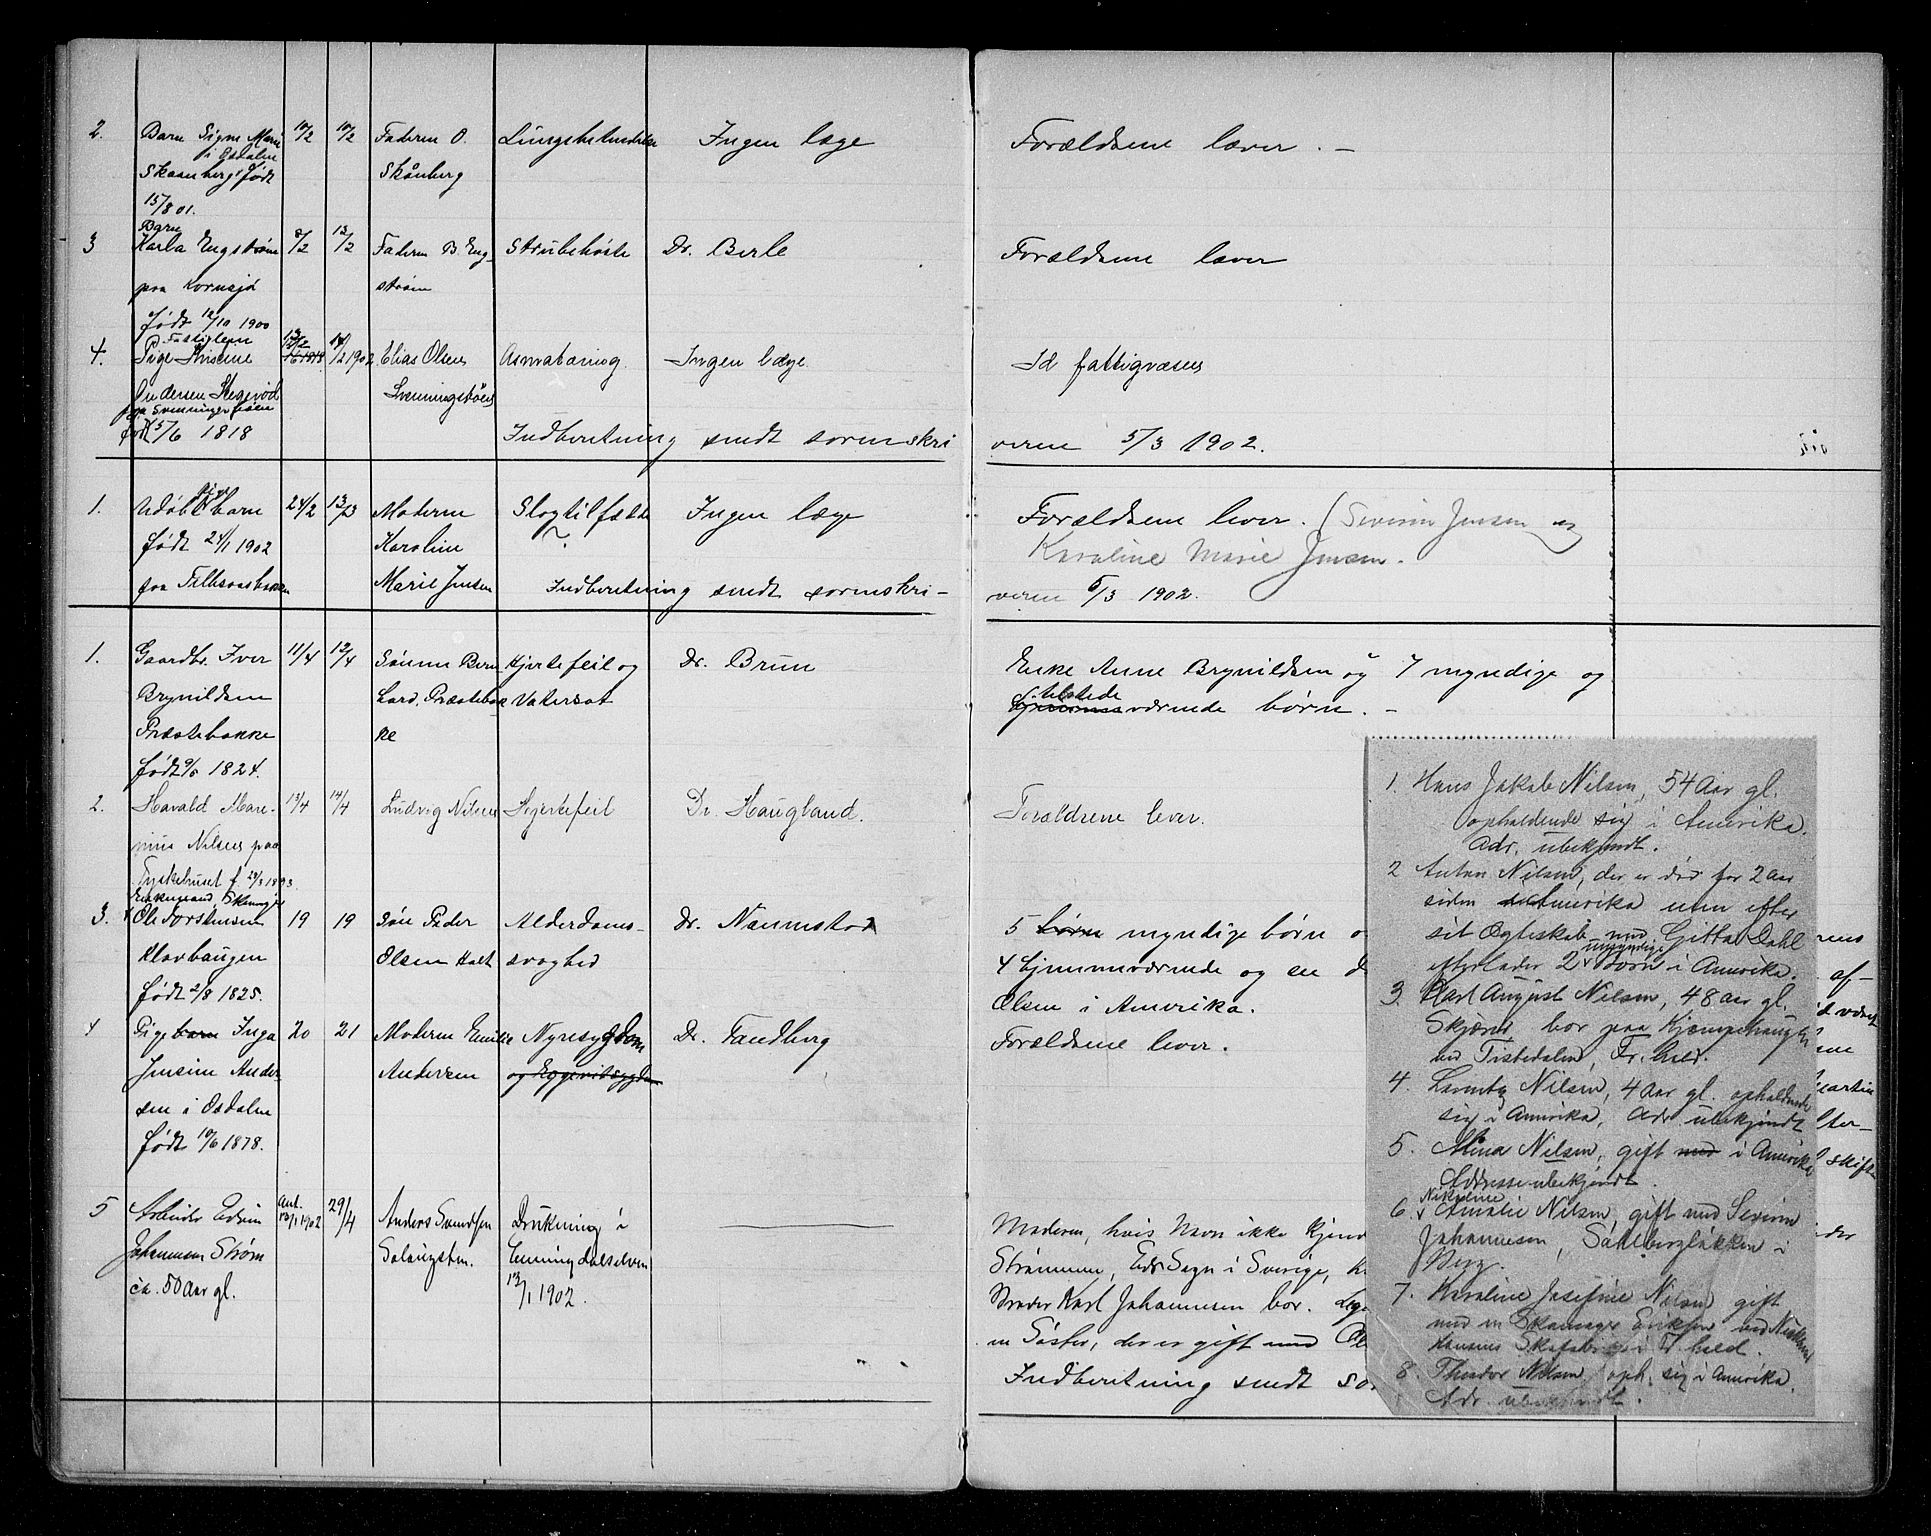 2. Barn Signe Marie 10/2 10/2 Faderen O. Ingen læge Forældrene læver. –
i Osdalen
Skaanberg født Skånberg
15/8 01.
Barn
3 Karla Engstrøm 8/2 13/2 Faderen B. Eng- Strubehoste Dr. Berle Forældrene læver
paa Kornsjø strøm
født 12/10 1900
Fattiglem
4. Pige Kristine 13/2 14/2 1902 Elias Olsen Ingen læge Id fattigvæsen
Andersen Stegerød Svenningstøen
paa Svenningstøen
født 5/6 1818 Indberetning sendt sorenskri
veren 5/3 1902.
1. Udøbt pige barn 24/2 13/3 Moderen Slagtilfælde Ingen læge Forældrene lever. (Severin Jensen og
født 24/1 1902 Karoline ? Karoline Marie Jensen.
paa Marie Jensen Indberetning sendt sorenskri-
veren 6/3 1902.
1. Gaardbr. Iver 11/4 12/4 Sønnen Bern Hjertefeil og Dr. Brun Enke Anne Brynildsen og 7 myndige og
Brynildsen hard. Præstebak Vatersot tilstede
Præstebakke ke værende børn. –
født 9/5 1824.
2. Harald Mare- 13/4 14/4 Ludvig Nilsen Hjertefeil Dr. Haugland. Forældrene lever.
nius Nilsen paa
Tyskehuset f. 29/3 1893.
Enkemand,
3. Ole Torstensen 19 19 Søn Peder Alderdoms- Dr. Naumstad 5 børn myndige børn
Klavhaugen Olsen Holt svaghed 4 hjemmeværende og en
født 2/8 1825. Olsen i Amerika.
4 Pige barn Inga 20 21 Moderen Emilie Nyresygdom Dr. Tandberg Forældrene lever.
Jensine Ander- Andersen og
sen i Osdalen
født 10/6 1878.
5 Arbeider Edvin Ant. 13/1 1902 29/4 Anders Svendsen Drukning i Moderen, hvis Navn ikke kjend
Johannesen Strøm Enningdalselven Strømmen, Eds Sogn i Sverige,
ca. 50 Aar gl. 13/1 1902. Broder Karl Johannesen bor.
en Søster, der er gift med
Indberetning sendt so
1. Hans Jakob Nilsen, 54 Aar gl.
opholdende sig i Amerika.
Adr. ubekjendt.
2 Anton Nilsen, der er død for 2 aar
siden Amerika men efter
sit Ægteskab med Gitta Dahl
umyndige
efterlader 2 børn i Amerika.
3. Karl August Nilsen, 48 aar gl.
bor paa Kjæmpehaugen
ved Tistedalen, Fr.hald.
4. Nilsen, 4 aar gl. opholdende
sig i Amerika, Adr ubekjendt
5. Mina Nilsen, gift med i Amerika
Addresse ubekjendt.
Nikoline
6. Amalie Nilsen, gift med Severin
Johannesen, Sahlbergløkken i
Berg.
7. Karoline Josefine Nilsen gift
med en Skomager Eriksen ved
Hansens Skofabrik i Fr.hald.
8. Theodor Nilsen, oph. sig i Amerika.
Adr. ubekjendt.